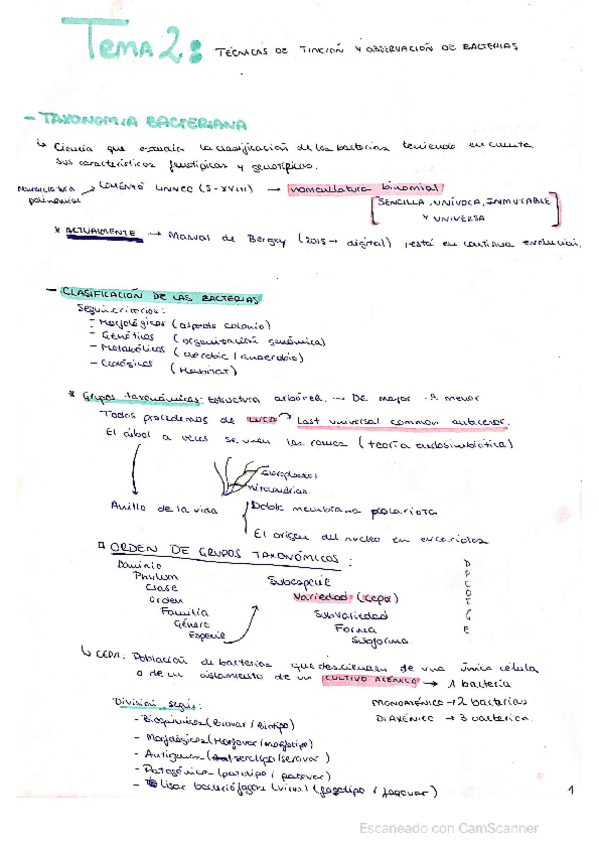 TEMA 2: TÉCNICAS DE TINCIÓN Y OBSERVACIÓN DE BACTERIAS
- TAXONOMIA BACTERIANA
↳ Ciencia que estudia la clasificación de las bacterias teniendo en cuenta
sus características fenotípicas y genotípicas.
Nomenclatura polinomial → LINNEO (S-XVIII) → nomenclatura binomial
[SENCILLA, UNÍVOCA, INMUTABLE
Y UNIVERSA]
* ACTUALMENTE → Manual de Bergey (2015 → digital) ¡está en continua evolución.
- CLASIFICACIÓN DE LAS BACTERIAS
Según criterios:
- Morfológicos (aspecto colonia)
- Genéticos (organización genómica)
- Metabólicos (aerobic / anaerobio)
- Ecológicos (Habitat)
* Grupos taxonómicos: Estructura arbórea → De mayor a menor
Todos procedemos de LUCA → Last universal common ancestor.
El árbol a veces se unen las ramas (teoría endosimbiótica)
cloroplastos
mitocondrias.
Anillo de la vida
Doble membrana procariota
El origen del nucleo en eucariotas
ORDEN DE GRUPOS TAXONÓMICOS:
Dominio
Phylum
Clase
Orden
Familia
Género
Especie
Subespecie
Variedad (cepa)
Subvariedad
Forma
Subforma
D
P
C
O
F
G
E
↳ CEPA: Población de bacterias que descienden de una única célula
o de un aislamiento de un CULTIVO AXÉNICO → 1 bacteria
MONOXÉNICO → 2 bacterias
DIAXÉNICO → 3 bacterica.
División según:
- Bioquímica (Biovar / biotipo)
- Morfológica (Morfovar / morfotipo)
- Antígenica (serotipo / serovar)
- Patogénica (patotipo / patovar)
- Lisar bacteriófagos (virus) (fagotipo / fagovar)
1
Escaneado con CamScanner